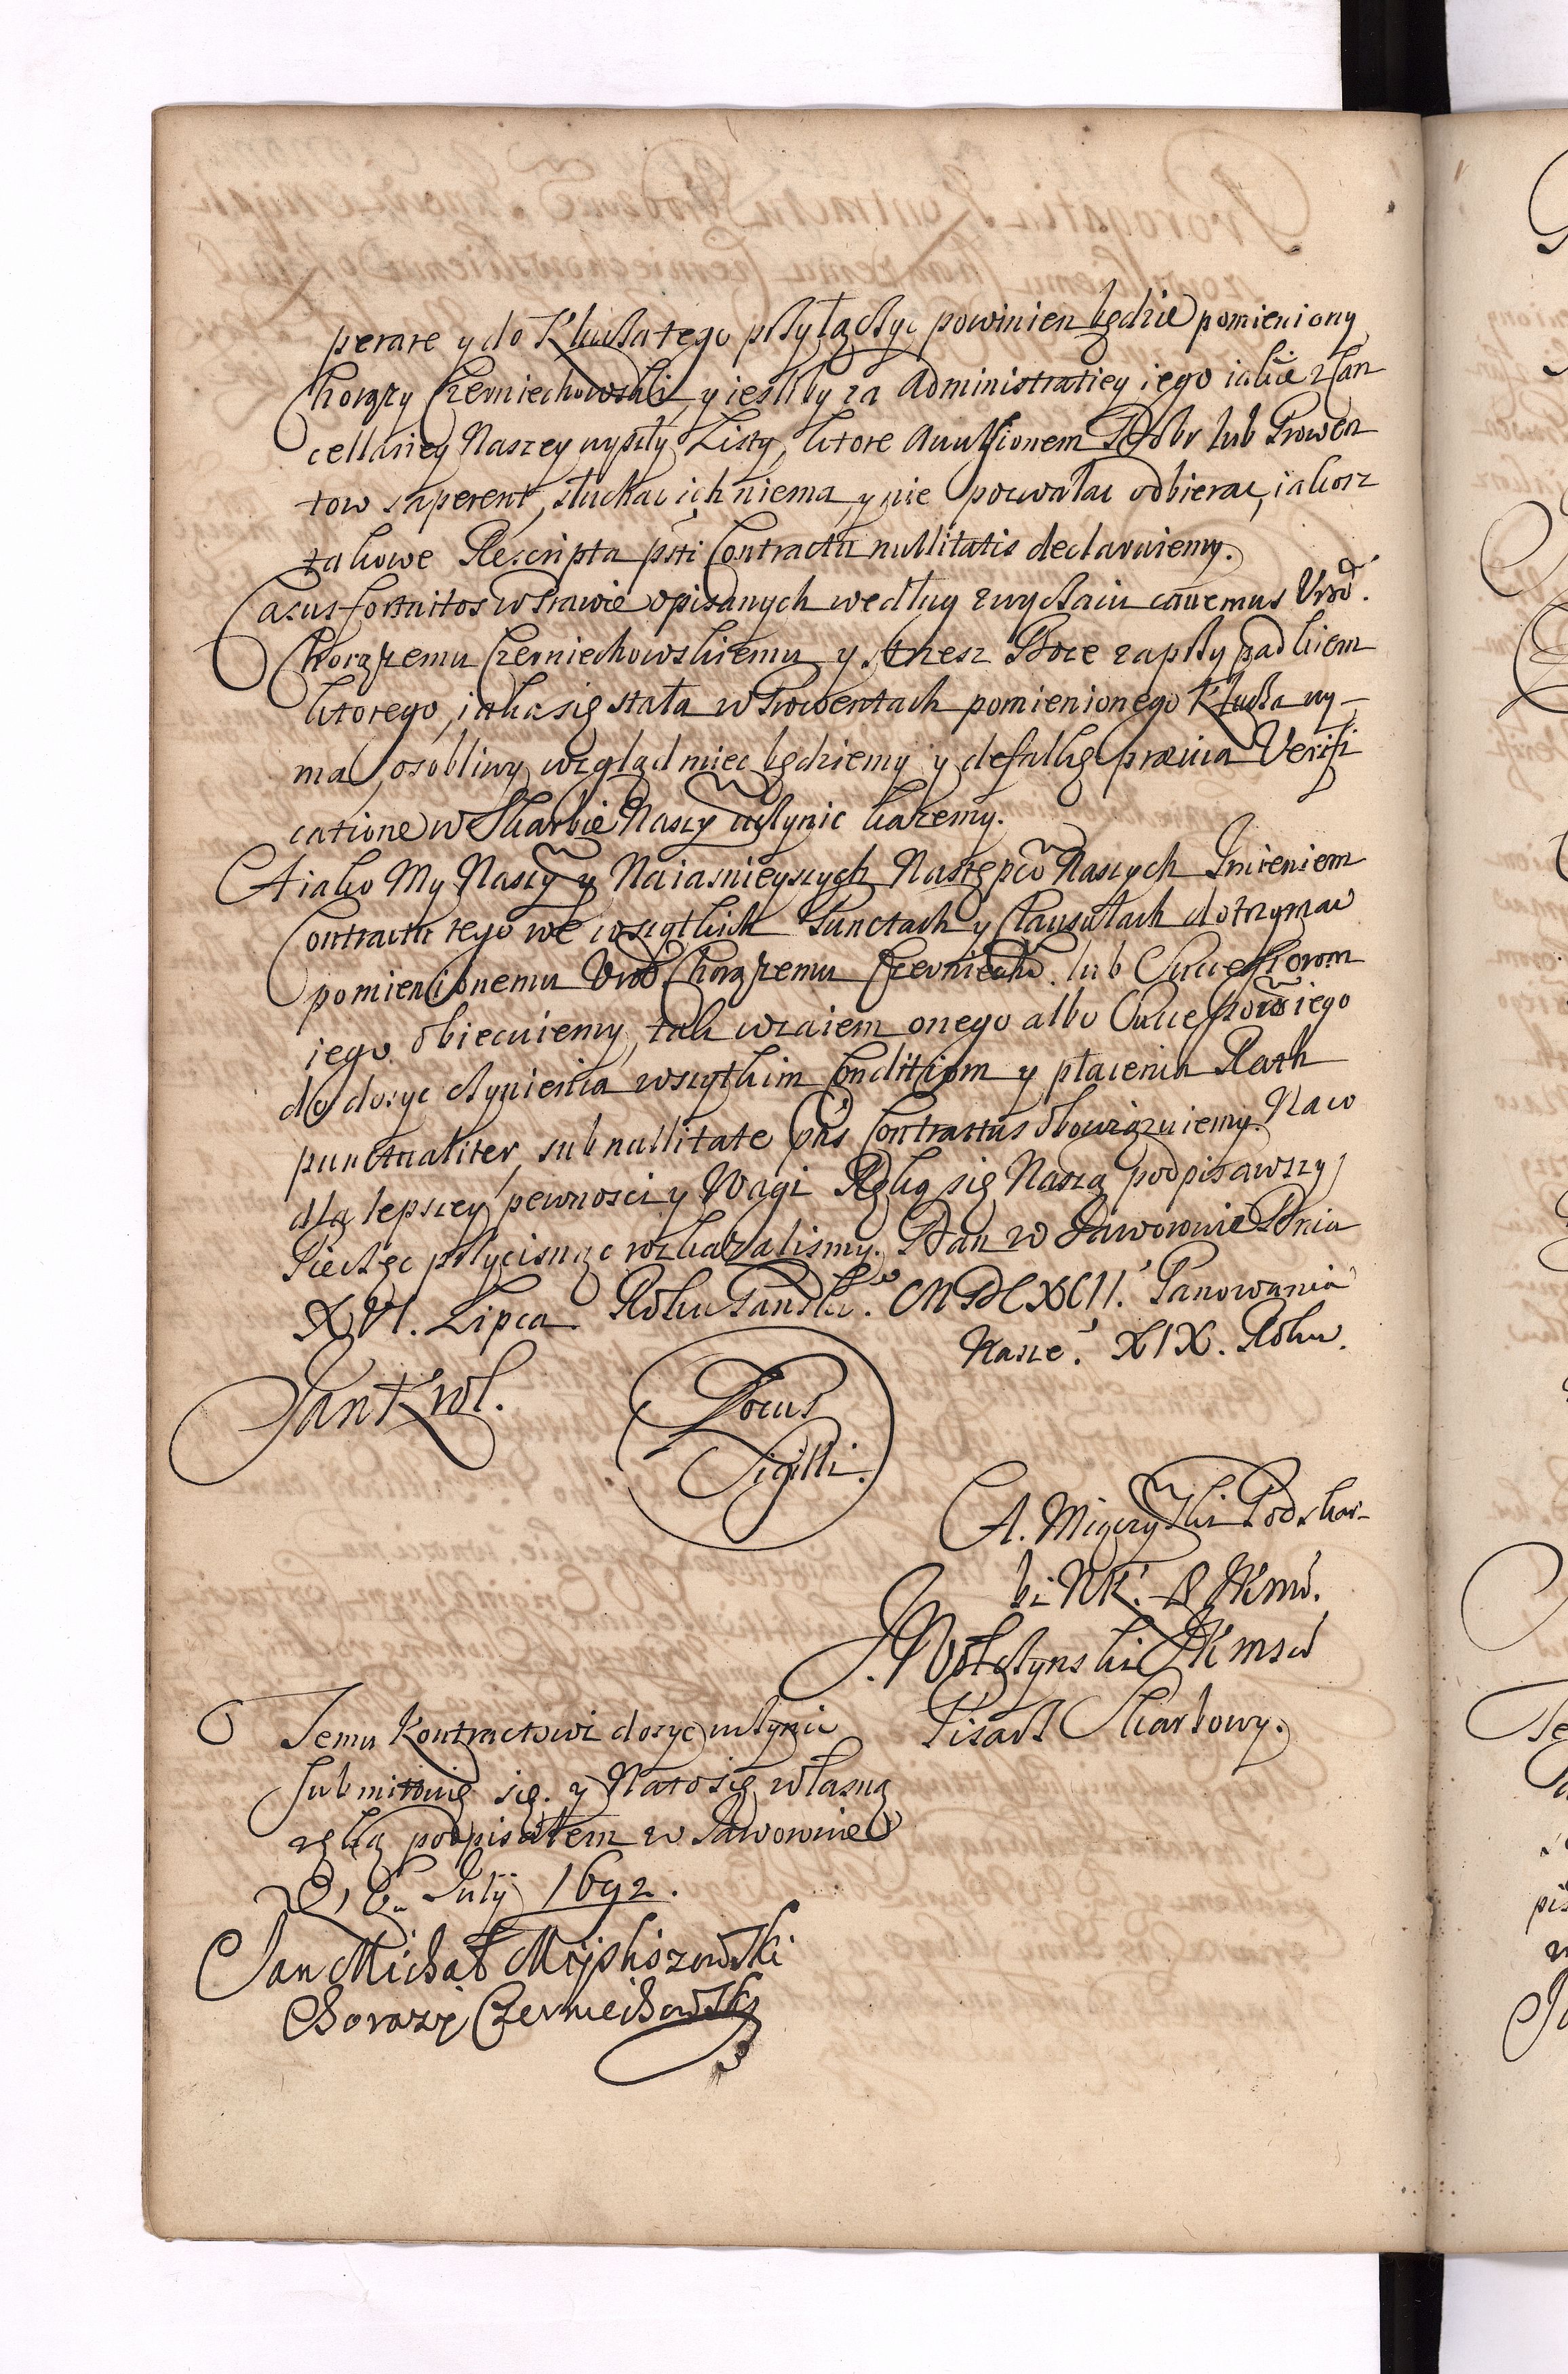 perare y do Klucza tego przyłączyc powinien będzie pomieniony
Chorązy Czerniechowski, y iesliby za Administratiey iego iakie z Can
cellariey Naszey wyszły Listy, ktore Avulsionem Dobr lub Prowen
tow saperent, słuchac ich niema, y nie pozwalac odbierac, iakosz
takowe Rescripta pnti Contractu nullitatis declaruiemy.
Casus fortuitos w Prawie opisanych według zwyczaiu cavemus Urod.
Chorązemu Czerniechowskiemu y strzesz Boze za przypadkiem
ktorego, iaka się stała w Prowentach pomienionego Klucza uy-
ma, osobliwy wzgląd miec będziemy y defalkę praevia Verifi
catione w Skarbie Naszy uczynic każemy.
A iako My Naszy y Naiasnieyszych Następcō Naszych Imieniem
Contractu tego we wszytkich Punctach y Clausulach dotrzymac
pomienionemu Urod. Chorązemu Czerniecho. lub Successorom
iego obiecuiemy, tak wzaiem onego albo Successorō iego
do dosyc czynienia wszytkim Conditiom y płacenia Rath
punctualiter, sub nullitate pntis Contractus obowiązuiemy. Na co
dla lepszey pewnosci y Wagi Ręką się Naszą podpisawszy
Pieczęc przycisnąc rozkazalismy. Dan w Jaworowie Dnia
XVI. Lipca Roku Pansko. MDCXCII. Panowania
Nasze. XIX. Roku.
Jan Krol.
Locus
Sigilli.
A. Miączyski Podskar-
bi NK. JKMci.
J. Wolczynski JKMsci
Pisarz Skarbowy.
Temu Kontractowi dosyc uczynic
submittuię się. y Na to się własną
ręką podpisałem w Jaworowie
D 16 Julij 1692.
Jan Michał Mysliszowski
Chorazy Czerniechowski